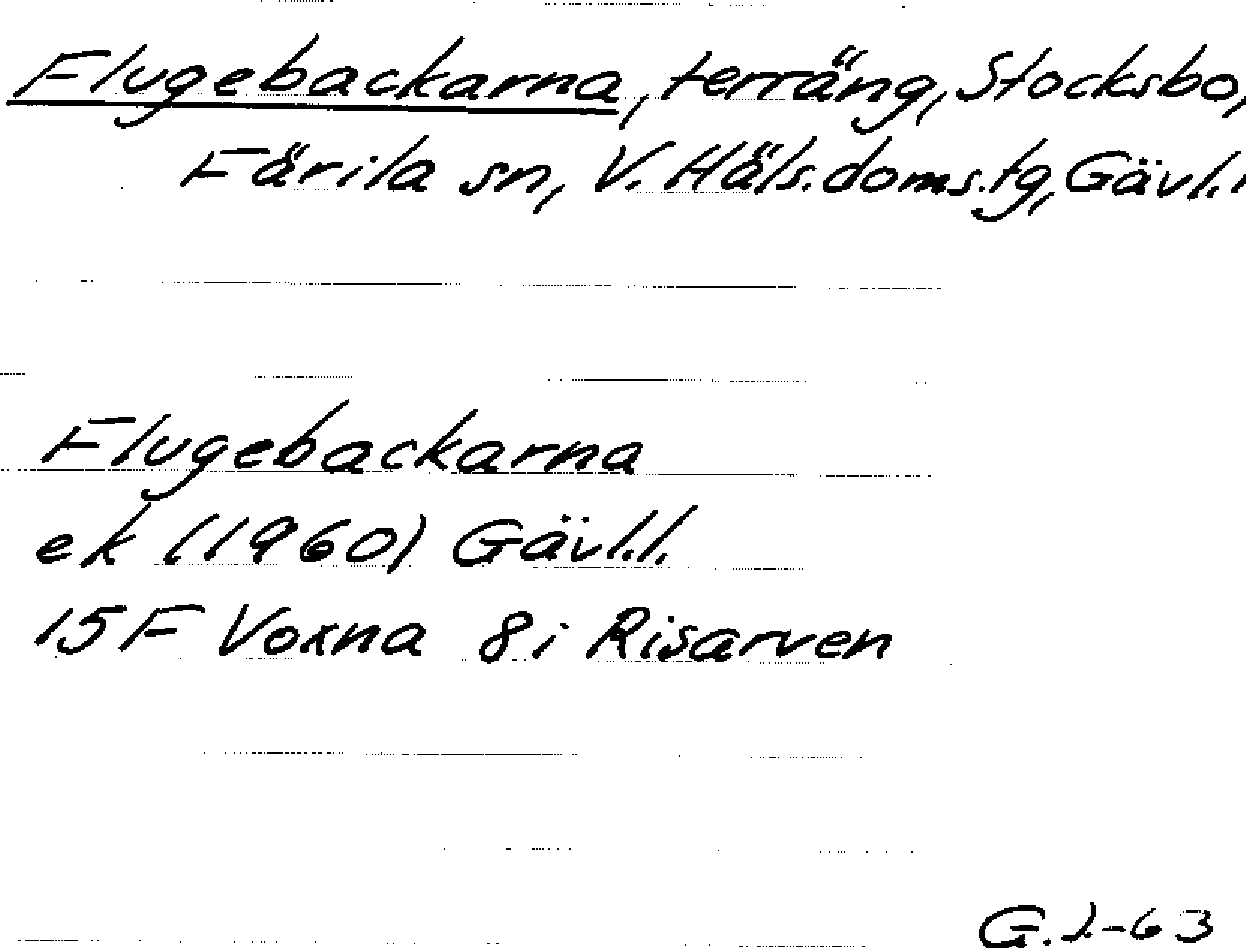 Flugebackarna, terräng, Stocksbo,
Färila sn, V. Häls.doms.tg, Gävl.l
Flugebackarna
ek (1960) Gävl.l.
15F Voxna 8i Risarven
G.J.-63